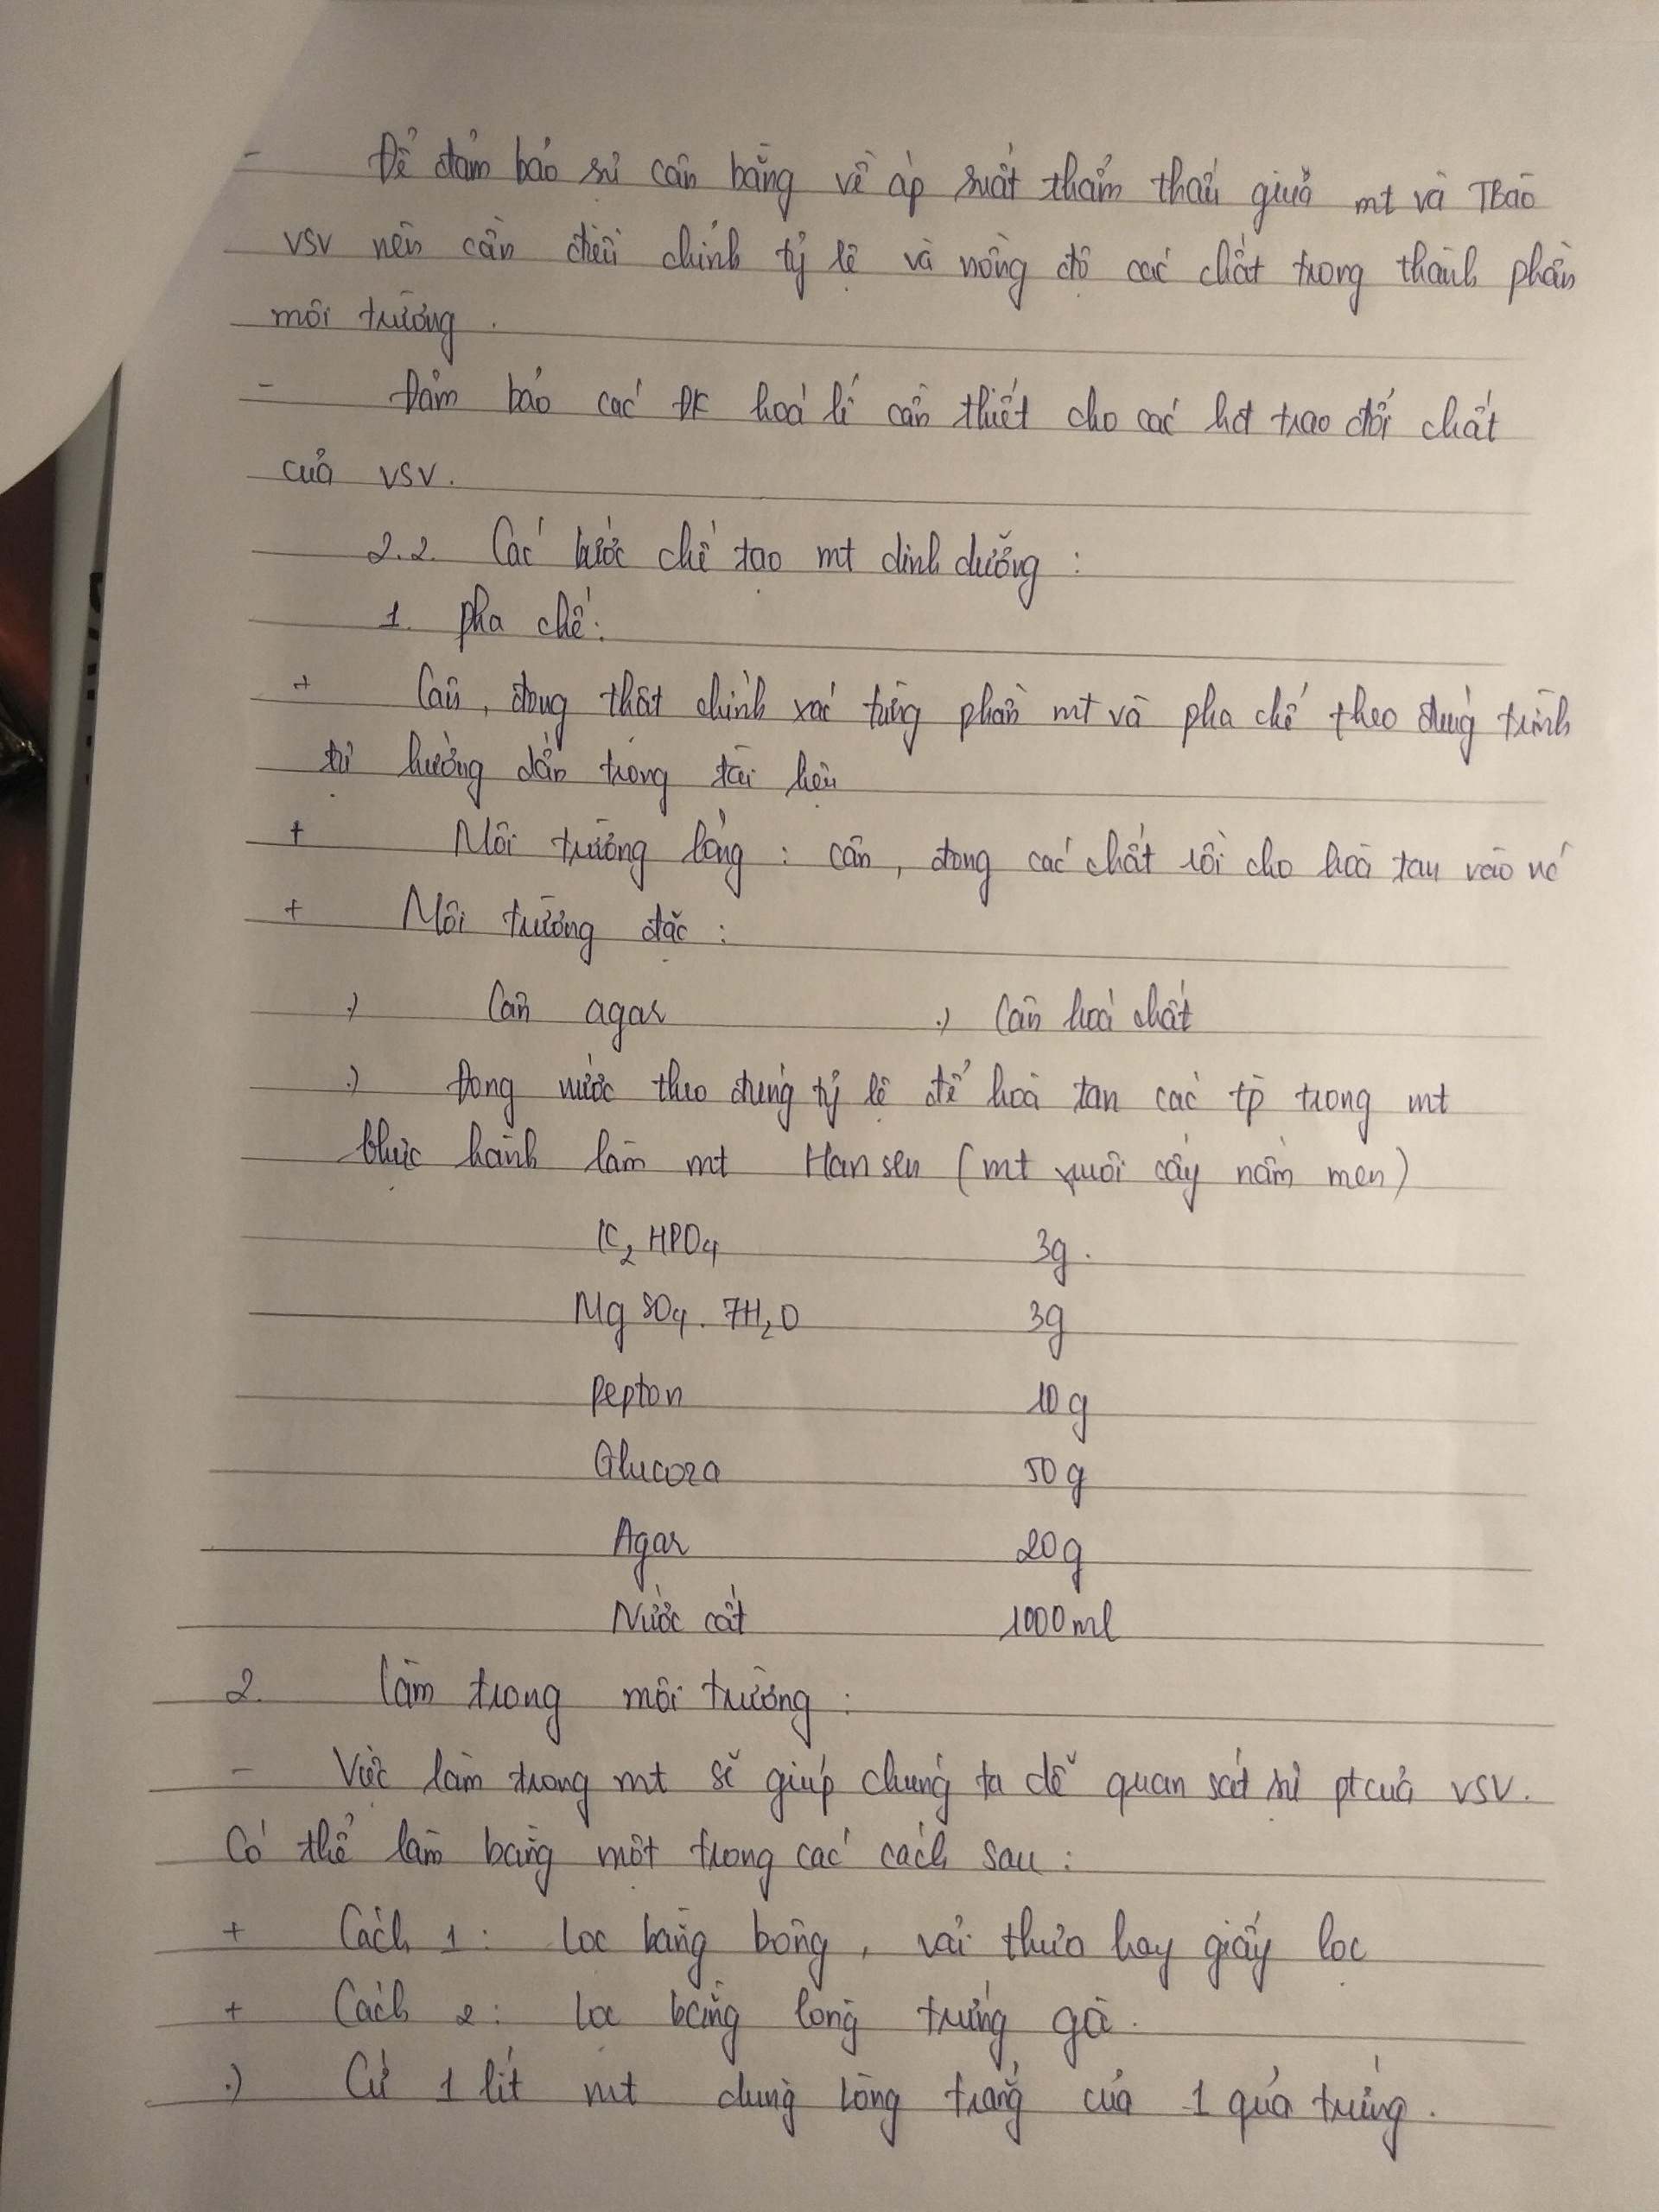 - Để đảm bảo sự cân bằng về áp suất thẩm thấu giữa mt và TBào
VSV nên cần điều chỉnh tỷ lệ và nồng độ các chất trong thành phần
môi trường.
- Đảm bảo các ĐK hoá lí cần thiết cho các hđ trao đổi chất
của VSV.
2.2. Các bước chế tạo mt dinh dưỡng :
1. pha chế:
+ Cân, đong thật chính xác từng phần mt và pha chế theo đúng trình
tự hướng dẫn trong tài liệu
+ Môi trường lỏng : cân, đong các chất rồi cho hoà tan vào nc
+ Môi trường đặc :
.) Cân agar .) Cân hoá chất
.) Đong nước theo đúng tỷ lệ để hoà tan các tp trong mt
thực hành làm mt Hansen (mt nuôi cấy nấm men)
K2HPO4 3g.
MgSO4.7H2O 3g
Pepton 10g
Glucoza 50g
Agar 20g
Nước cất 1000ml
2. Làm trong môi trường :
- Việc làm trong mt sẽ giúp chúng ta dễ quan sát sự pt của VSV.
Có thể làm bằng một trong các cách sau :
+ Cách 1 : Lọc bằng bông, vải thưa hay giấy lọc
+ Cách 2 : Lọc bằng lòng trứng gà.
.) Cứ 1 lít mt dùng lòng trắng của 1 quả trứng.